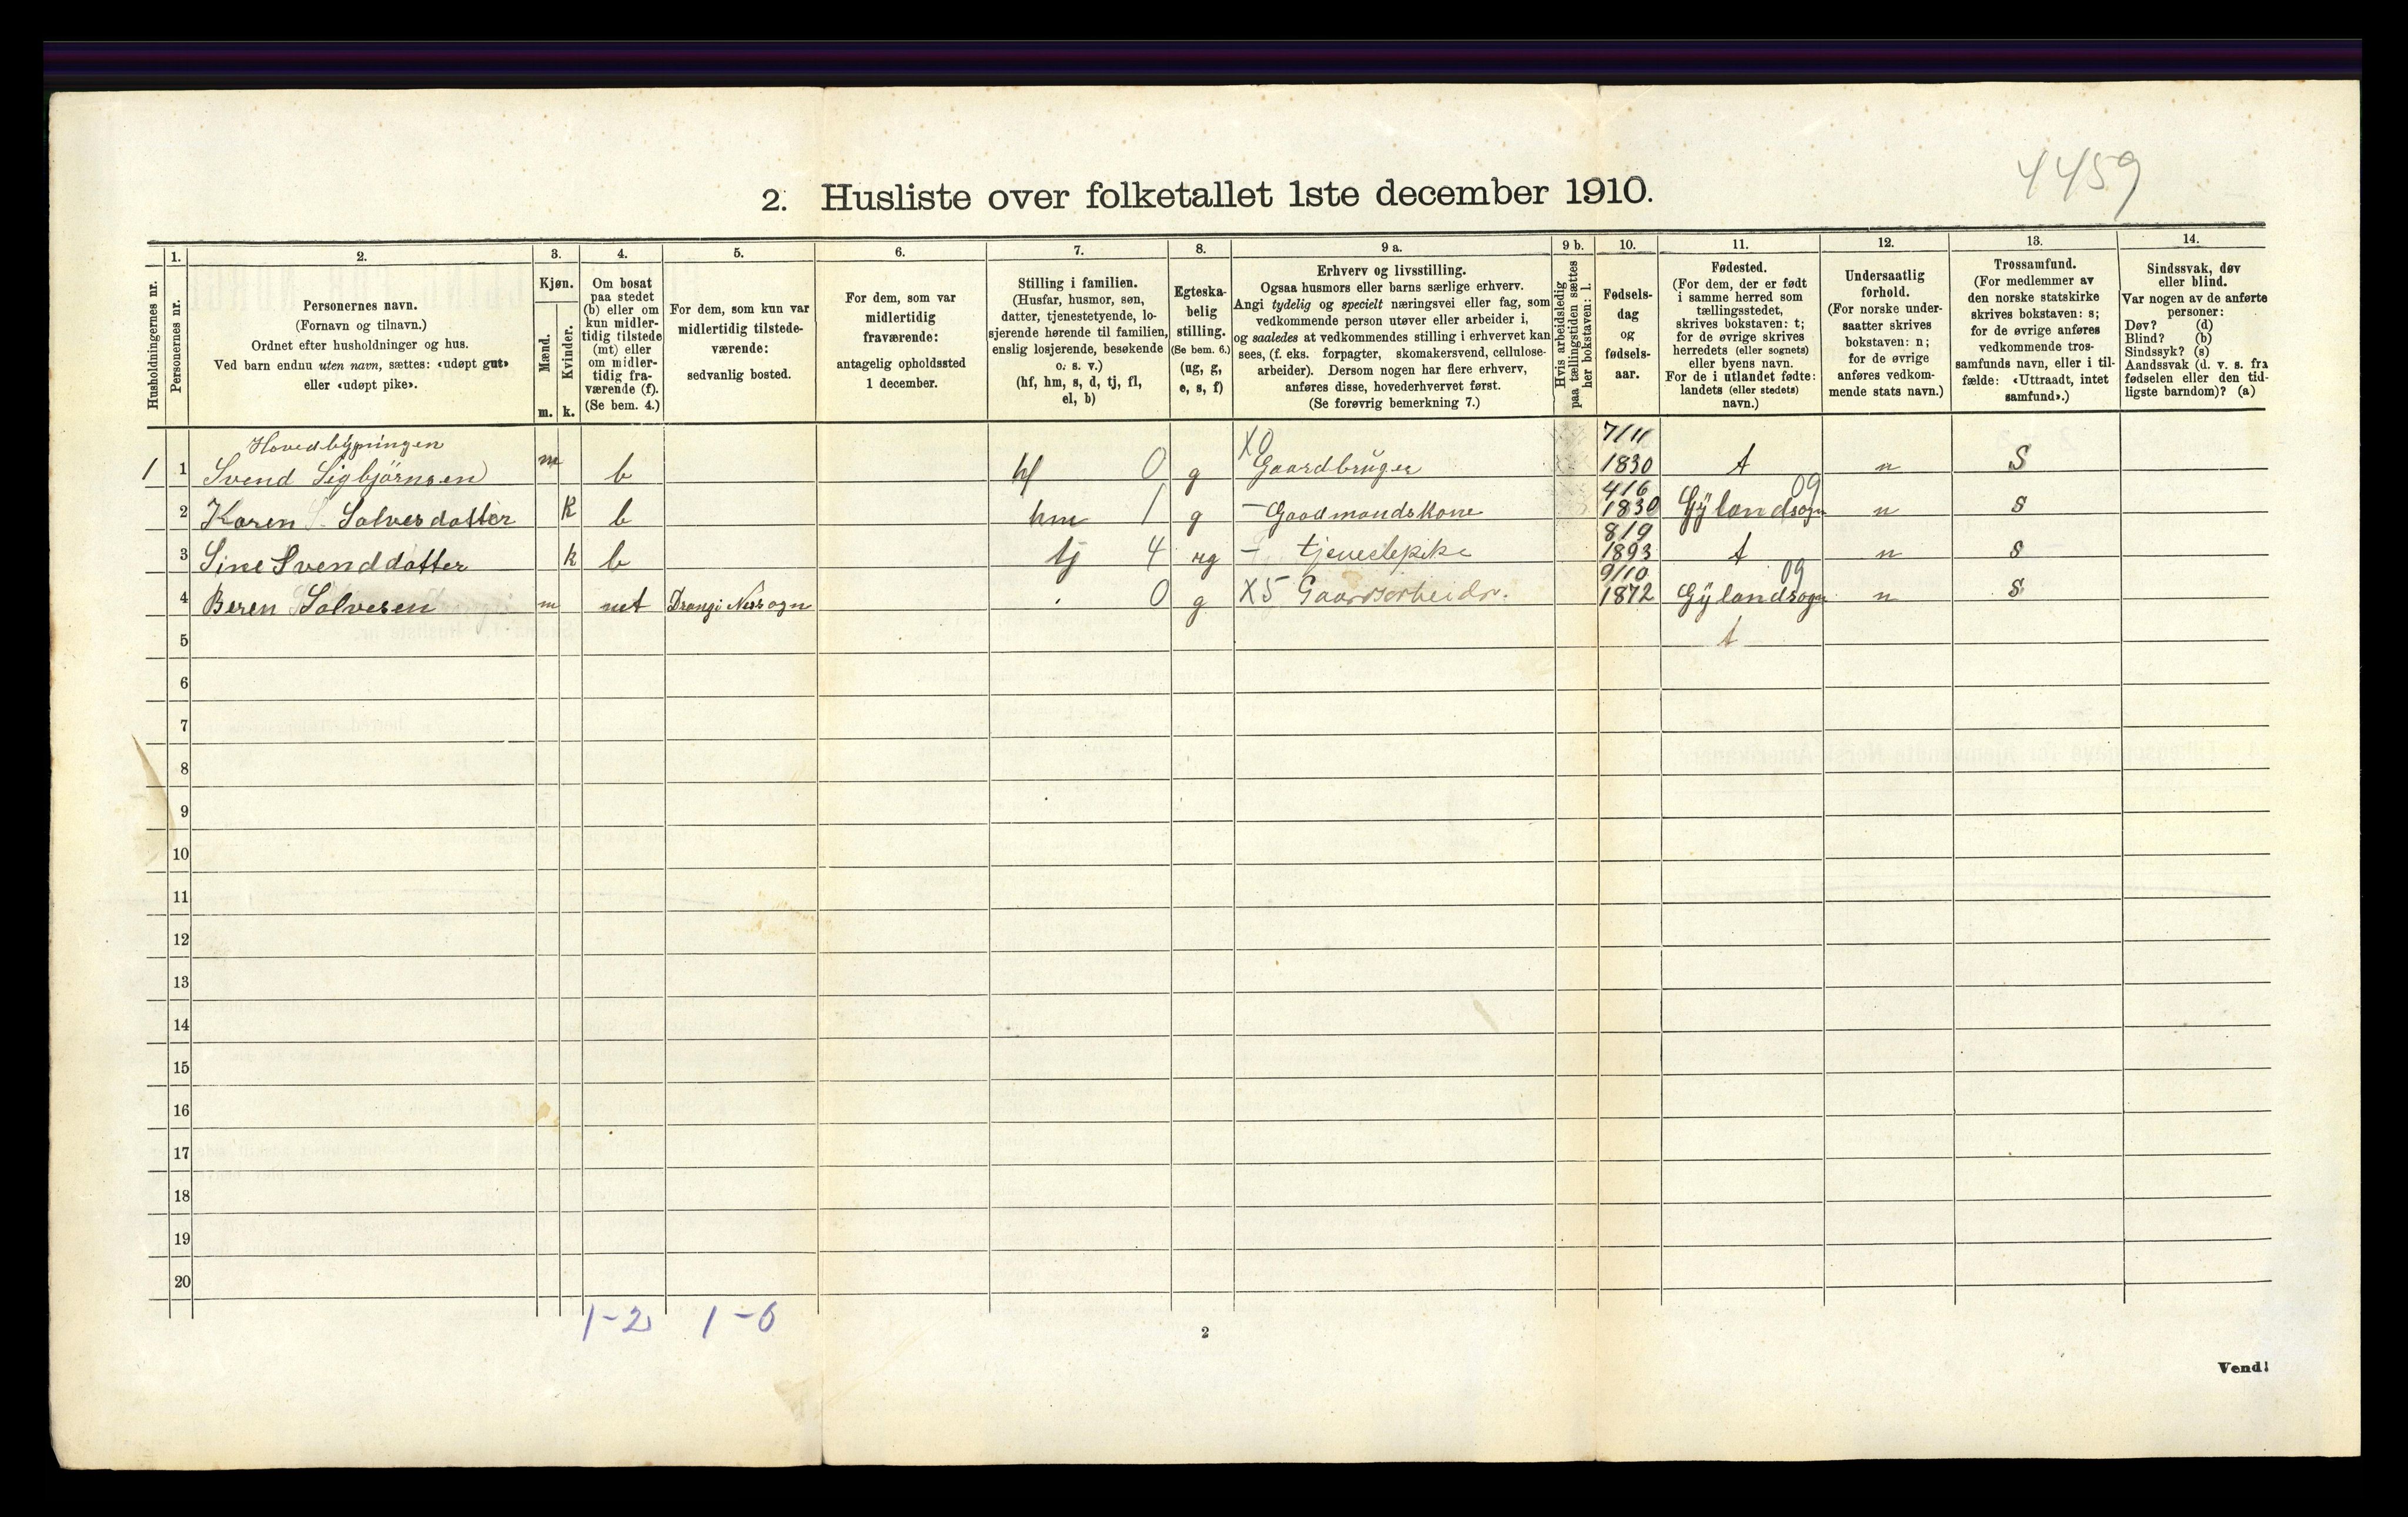 4459
2. Husliste over folketallet 1ste december 1910.
Husholdningernes nr.
1.
Personernes nr.
2.
Personernes navn.
(Fornavn og tilnavn.)
Ordnet efter husholdninger og hus.
Ved barn endnu uten navn, sættes: «udøpt gut»
eller «udøpt pike».
3.
Kjøn.
Mænd.
Kvinder.
m. k.
4.
Om bosat
paa stedet
(b) eller om
kun midler-
tidig tilstede
(mt) eller
om midler-
tidig fra-
værende (f).
(Se bem. 4.)
5.
For dem, som kun var
midlertidig tilstede-
værende:
sedvanlig bosted.
6.
For dem, som var
midlertidig
fraværende:
antagelig opholdssted
1 december.
7.
Stilling i familien.
(Husfar, husmor, søn,
datter, tjenestetyende, lo-
sjerende hørende til familien,
enslig losjerende, besøkende
o. s. v.)
(hf, hm, s, d, tj, fl,
el, b)
8.
Egteska-
belig
stilling.
(Se bem. 6.)
(ug, g,
e, s, f)
9 a.
Erhverv og livsstilling.
Ogsaa husmors eller barns særlige erhverv.
Angi tydelig og specielt næringsvei eller fag, som
vedkommende person utøver eller arbeider i,
og saaledes at vedkommendes stilling i erhvervet kan
sees, (f. eks. forpagter, skomakersvend, cellulose-
arbeider). Dersom nogen har flere erhverv,
anføres disse, hovederhvervet først.
(Se forøvrig bemerkning 7.)
9 b.
Hvis arbeidsledig
paa tællingstiden sættes
her bokstaven: l.
10.
Fødsels-
dag
og
fødsels-
aar.
11.
Fødested.
(For dem, der er født
i samme herred som
tællingsstedet,
skrives bokstaven: t;
for de øvrige skrives
herredets (eller sognets)
eller byens navn.
For de i utlandet fødte:
landets (eller stedets)
navn.)
12.
Undersaatlig
forhold.
(For norske under-
saatter skrives
bokstaven: n;
for de øvrige
anføres vedkom-
mende stats navn.)
13.
Trossamfund.
(For medlemmer av
den norske statskirke
skrives bokstaven: s;
for de øvrige anføres
vedkommende tros-
samfunds navn, eller i til-
fælde: «Uttraadt, intet
samfund».)
14.
Sindssvak, døv
eller blind.
Var nogen av de anførte
personer:
Døv? (d)
Blind? (b)
Sindssyk? (s)
Aandssvak (d. v. s. fra
fødselen eller den tid-
ligste barndom)? (a)
Hovedbygningen
1 1 Svend Sigbjörnsen m b hf 0 g X0 Gaardbruger 7/11 1830 t n S
2 Karen S. Salvesdatter k b hm 1 g - Gaadmandskone 4/6 1830 Gÿlandsogn 09 n s
3 Sine Svenddatter k b tj 4 ug - tjenestepike 8/9 1893 t n s
4 Beren Salvesen m mt Drangi Nessogn 0 g X5 Gaardsarbeidr. 9/10 1872 Gÿlandsogn 09 n s
5 t
6
7
8
9
10
11
12
13
14
15
16
17
18
19
20
1-2 1-0
2
Vend!